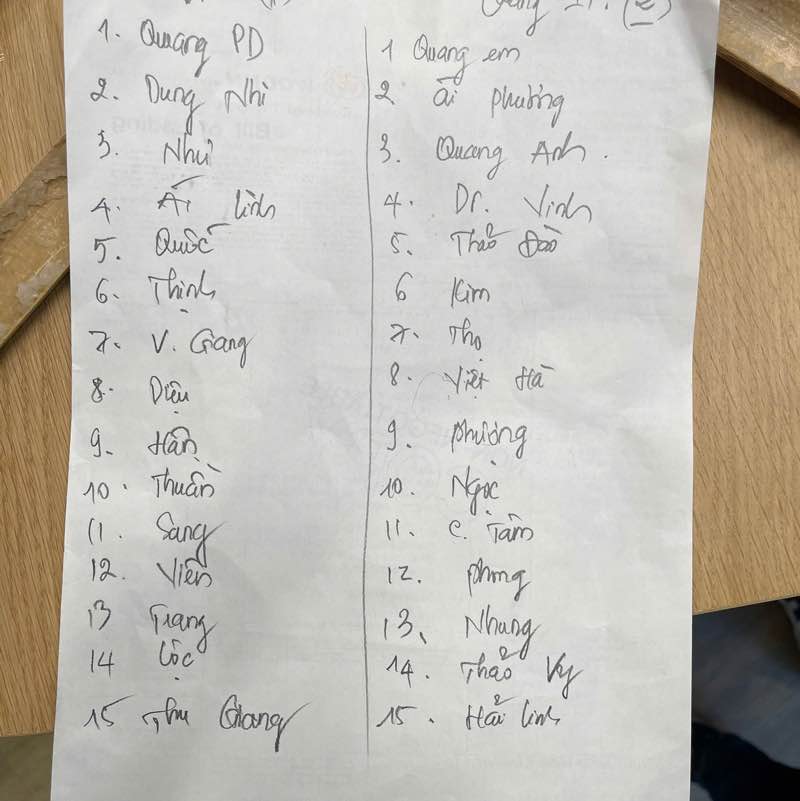 1. Quang PD
2. Dung Nhi
3. Như
4. Ái Linh
5. Quốc
6. Thịnh
7. V. Giang
8. Diệu
9. Hân
10. Thuần
11. Sang
12. Viên
13 Trang
14 Lộc
15 Thu Giang
1 Quang em
2 Ái Phương
3. Quang Anh.
4. Dr. Vinh
5. Thảo Đào
6 Kim
7. Thọ
8. Việt Hà
9. Phượng
10. Ngọc
11. C. Tâm
12. Phong
13. Nhung
14. Thảo Vy
15. Hải Linh